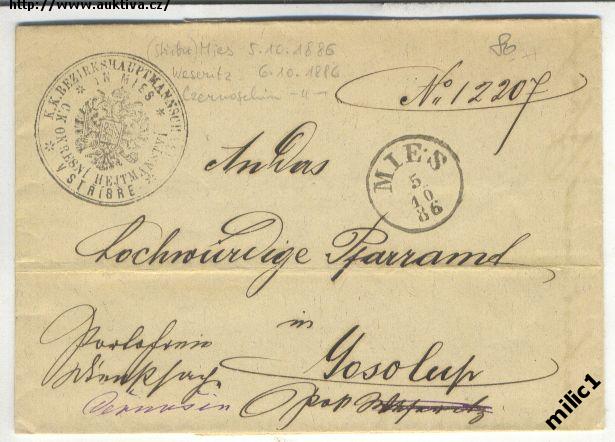 http://www.auktiva.cz/
(Stříbro) Mies 5.10.1886
Weseritz 6.10.1886
Czernoschin -"-
86
K.K. BEZIRKSHAUPTMANNSCHAFT
* IN MIES *
C.K. OKRESNÍ HEJTMANSTVÍ
V STŘÍBŘE
No 12207
An das
MIES
5/10
86
hochwürdige Pfarramt
in
Gosolup
Portofreie
Dienstsache
Černošín
post Weseritz
milic1